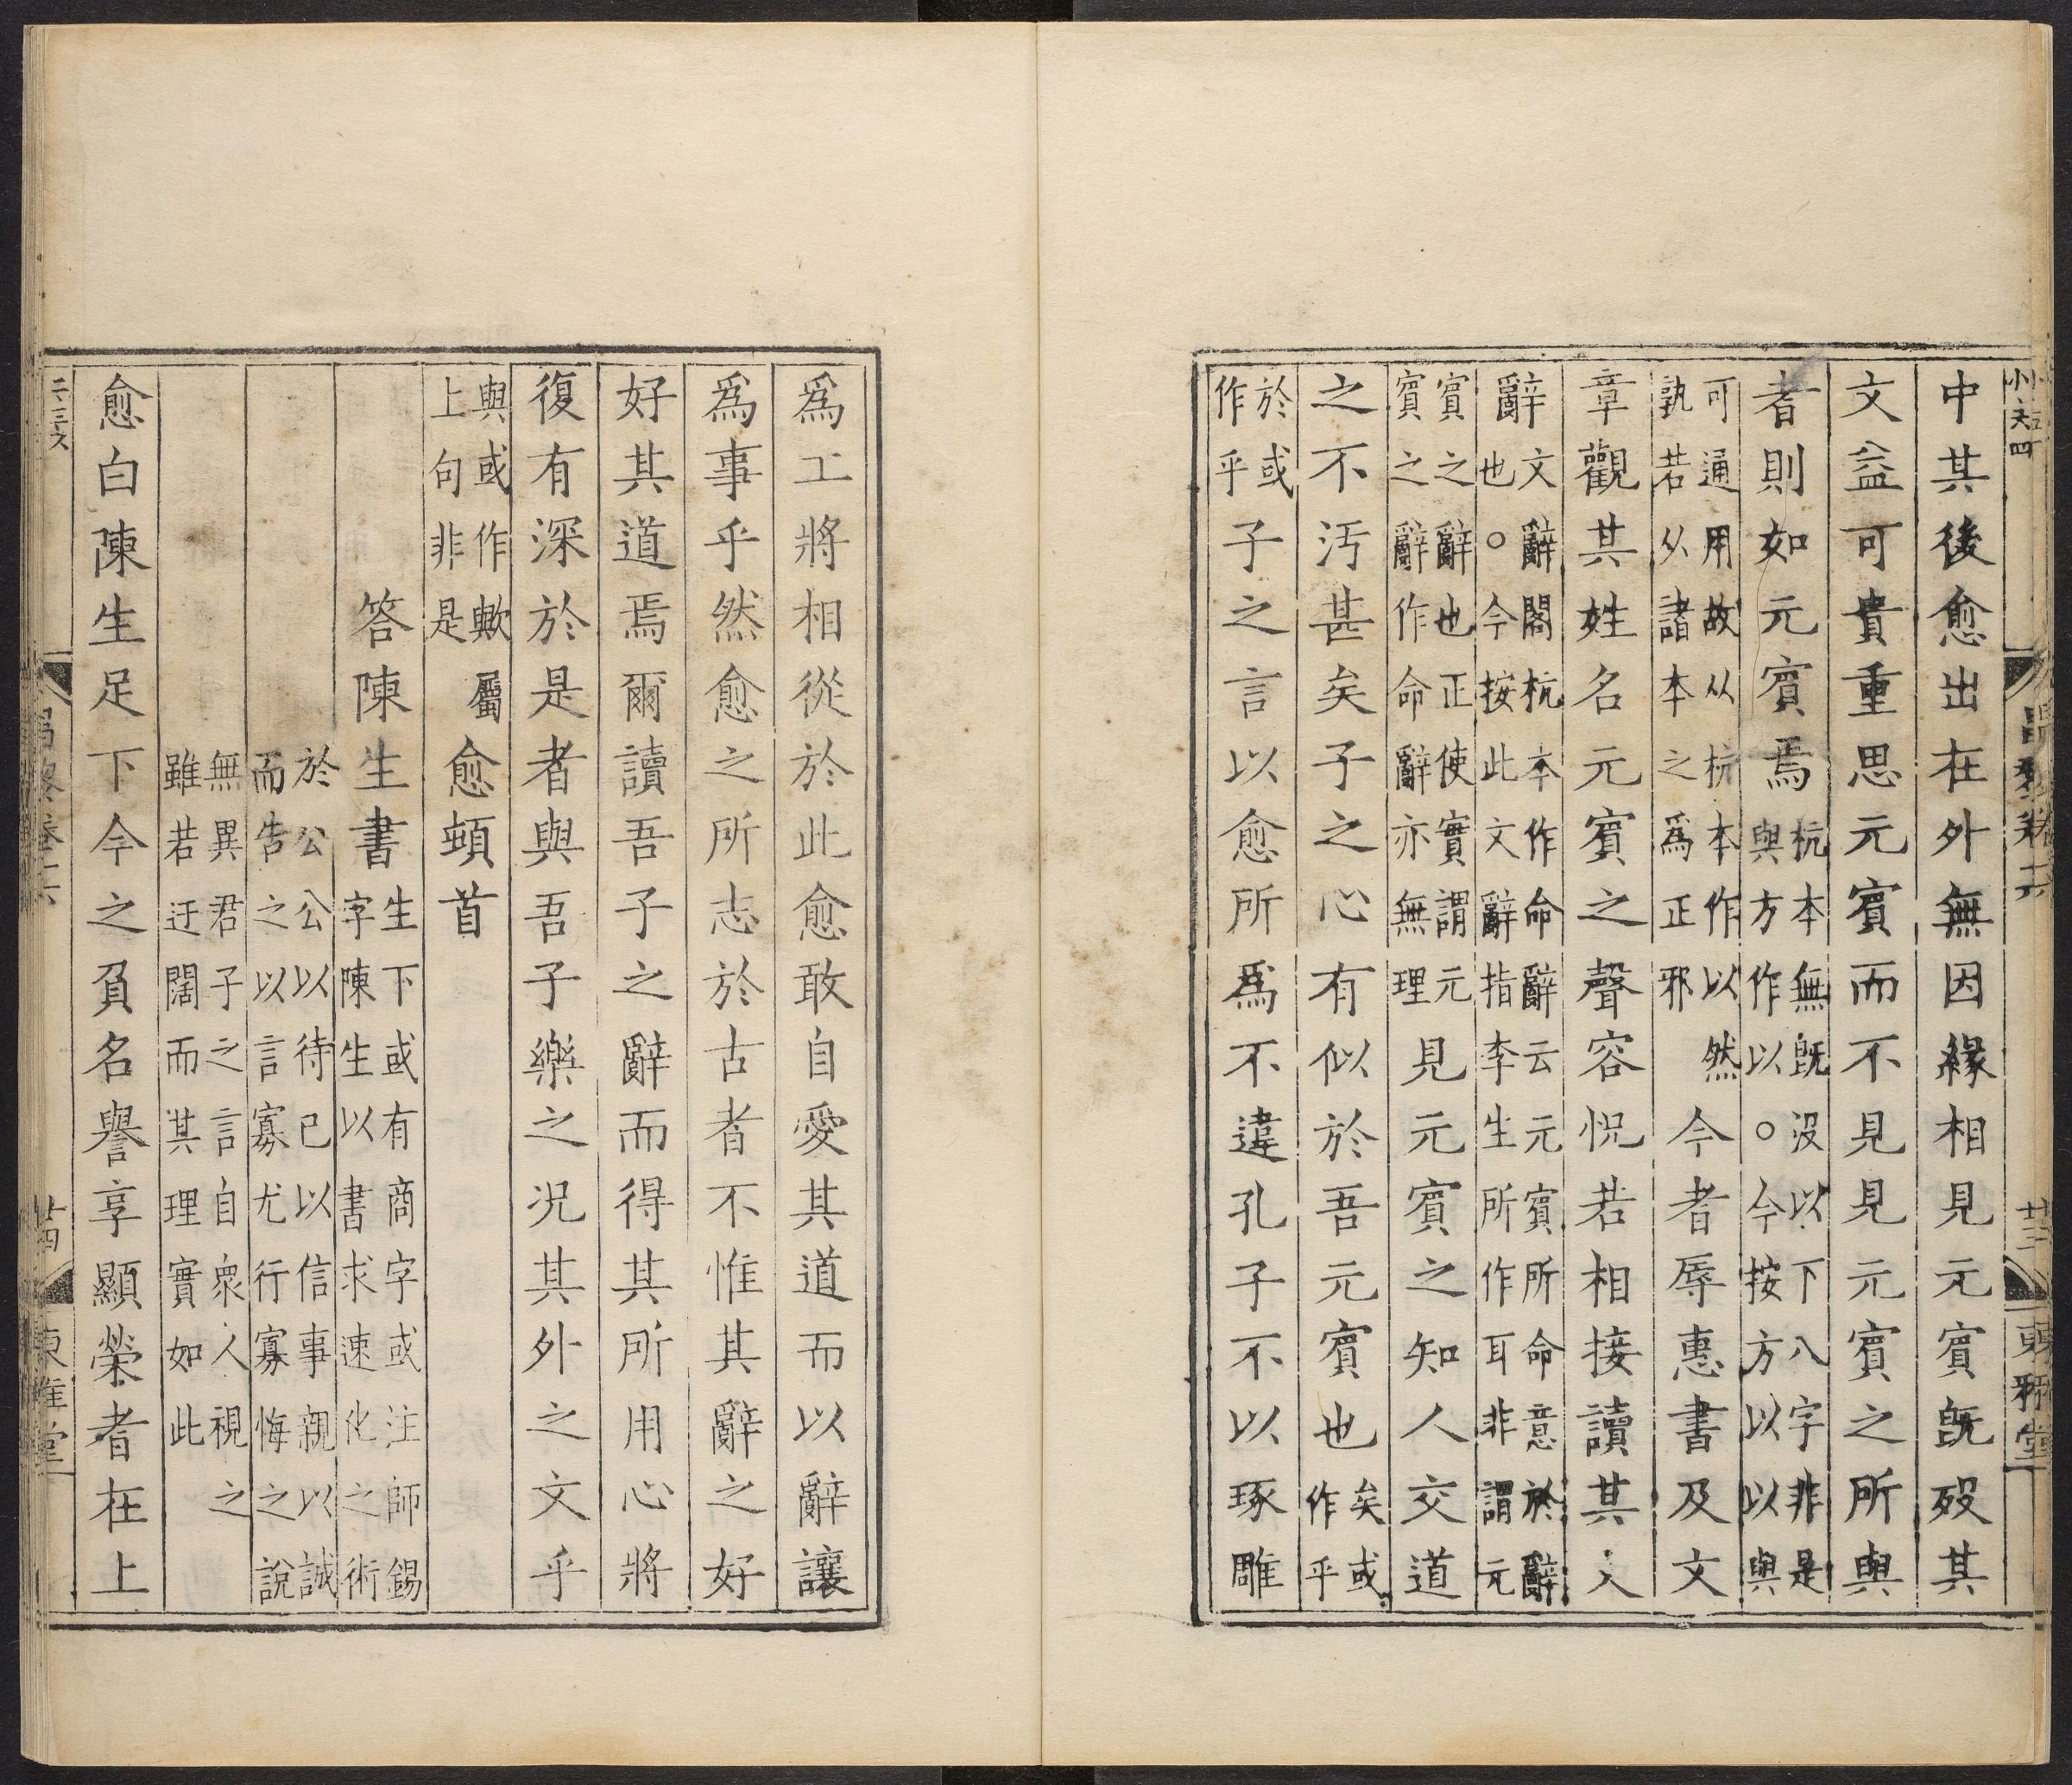 中其後愈出在外無因緣相見元賓旣歿其
文益可貴重思元賓而不見見元賓之所與
者則如元賓焉杭本無旣沒以下八字非是與方作以○今按方以以與
可通用故从杭本作以然孰若从諸本之爲正邪今者辱惠書及文
章觀其姓名元賓之聲容怳若相接讀其文
辭文辭閣杭本作命辭云元賓所命意於辭也○今按此文辭指李生所作耳非謂元
賓之辭也正使實謂元賓之辭作命辭亦無理見元賓之知人交道
之不汚甚矣子之心有似於吾元賓也矣或作乎
於或作乎子之言以愈所爲不違孔子不以琢雕
爲工將相從於此愈敢自愛其道而以辭讓
爲事乎然愈之所志於古者不惟其辭之好
好其道焉爾讀吾子之辭而得其所用心將
復有深於是者與吾子樂之況其外之文乎
與或作歟屬上句非是愈頓首
答陳生書生下或有商字或注師錫字陳生以書求速化之術
於公公以待己以信事親以誠而告之以言寡尤行寡悔之說
無異君子之言自衆人視之雖若迂闊而其理實如此
愈白陳生足下今之負名譽享顯榮者在上
東雅堂